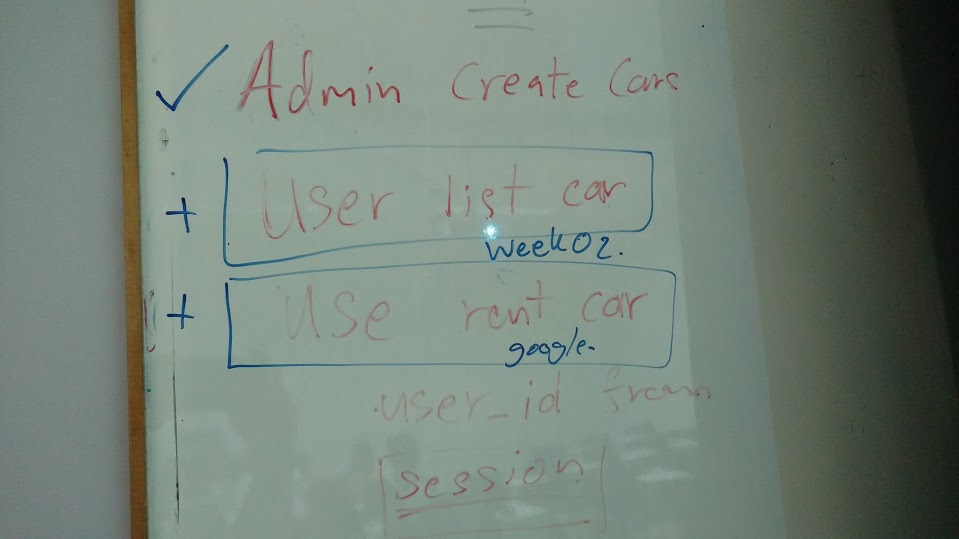 Admin Create Cars
User list car
week02.
Use rent car
google.
user_id from
session